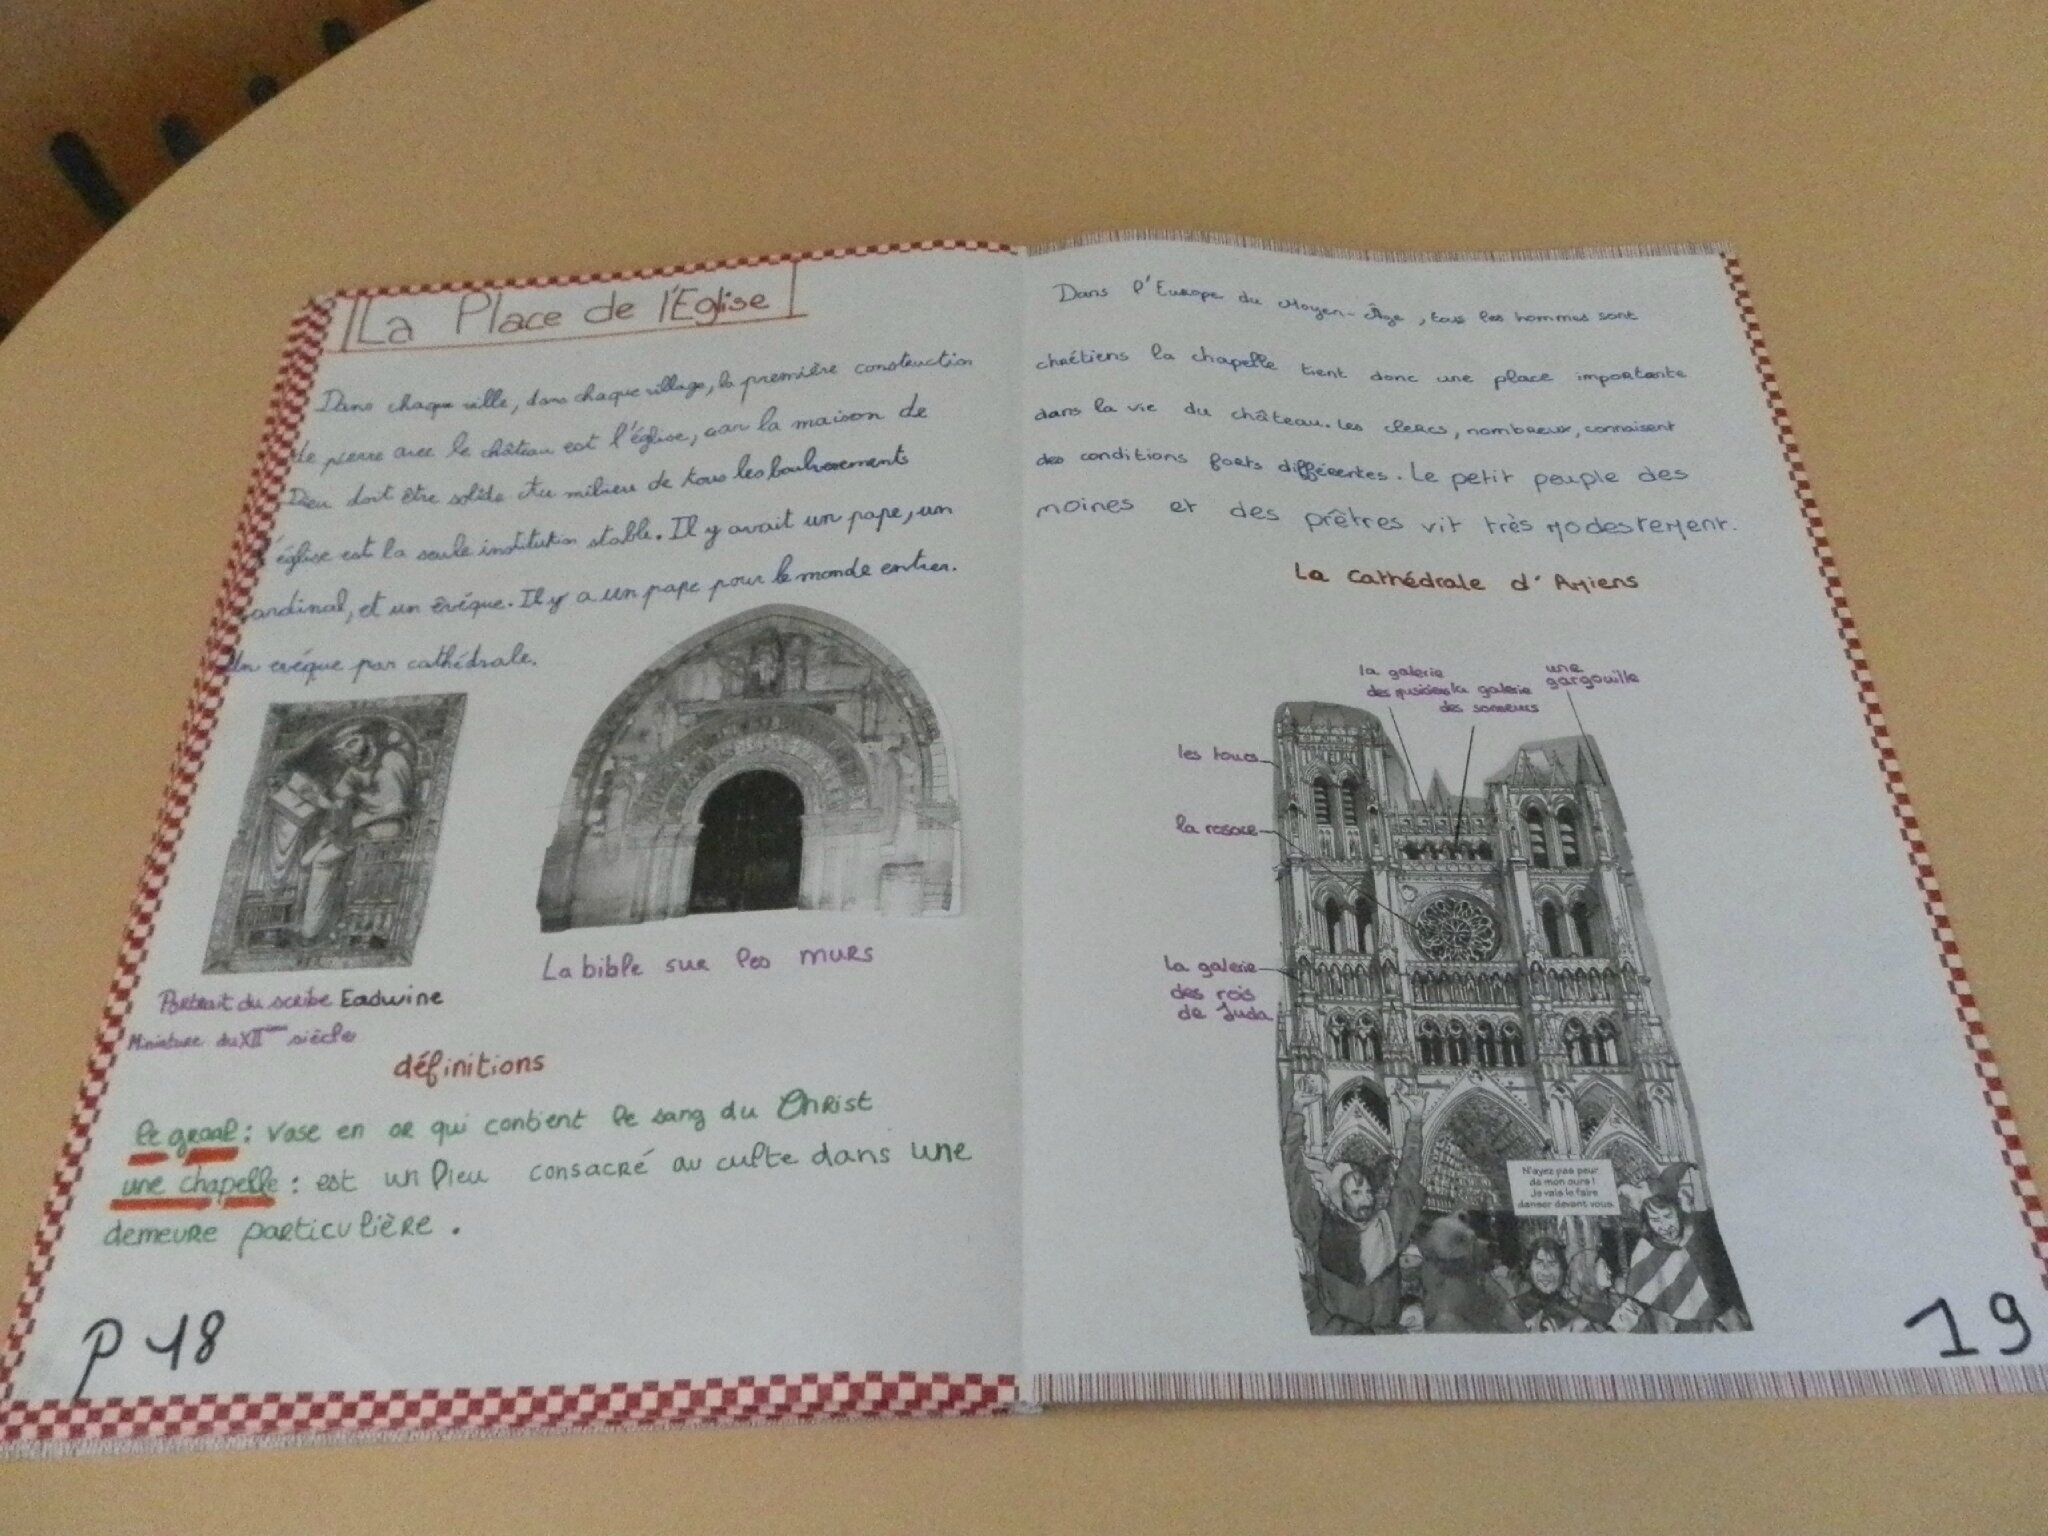 La Place de l'Eglise
Dans chaque ville, dans chaque village, la première construction
de pierre avec le château est l'église, car la maison de
Dieu doit être solide Au milieu de tous les boulversements
l'église est la seule institution stable. Il y avait un pape, un
cardinal, et un évéque. Il y a un pape pour le monde entier.
Un evéque par cathédrale.
Portrait du scribe Eadwine
Miniature du XIIème siècle
La bible sur les murs
définitions
le graal : vase en or qui contient le sang du Christ
une chapelle : est un lieu consacré au culte dans une
demeure particulière .
p 18
Dans l'Europe du Moyen-Âge, tous les hommes sont
chrétiens la chapelle tient donc une place importante
dans la vie du château. Les clercs, nombreux, connaisent
des conditions forts différentes. Le petit peuple des
moines et des prêtres vit très modestement.
La cathédrale d'Amiens
la galerie
des musiciens
la galerie
des sonneurs
une
gargouille
les tours
la rosace
la galerie
des rois
de Juda
N'ayez pas peur
de mon ours !
Je vais le faire
danser devant vous.
19